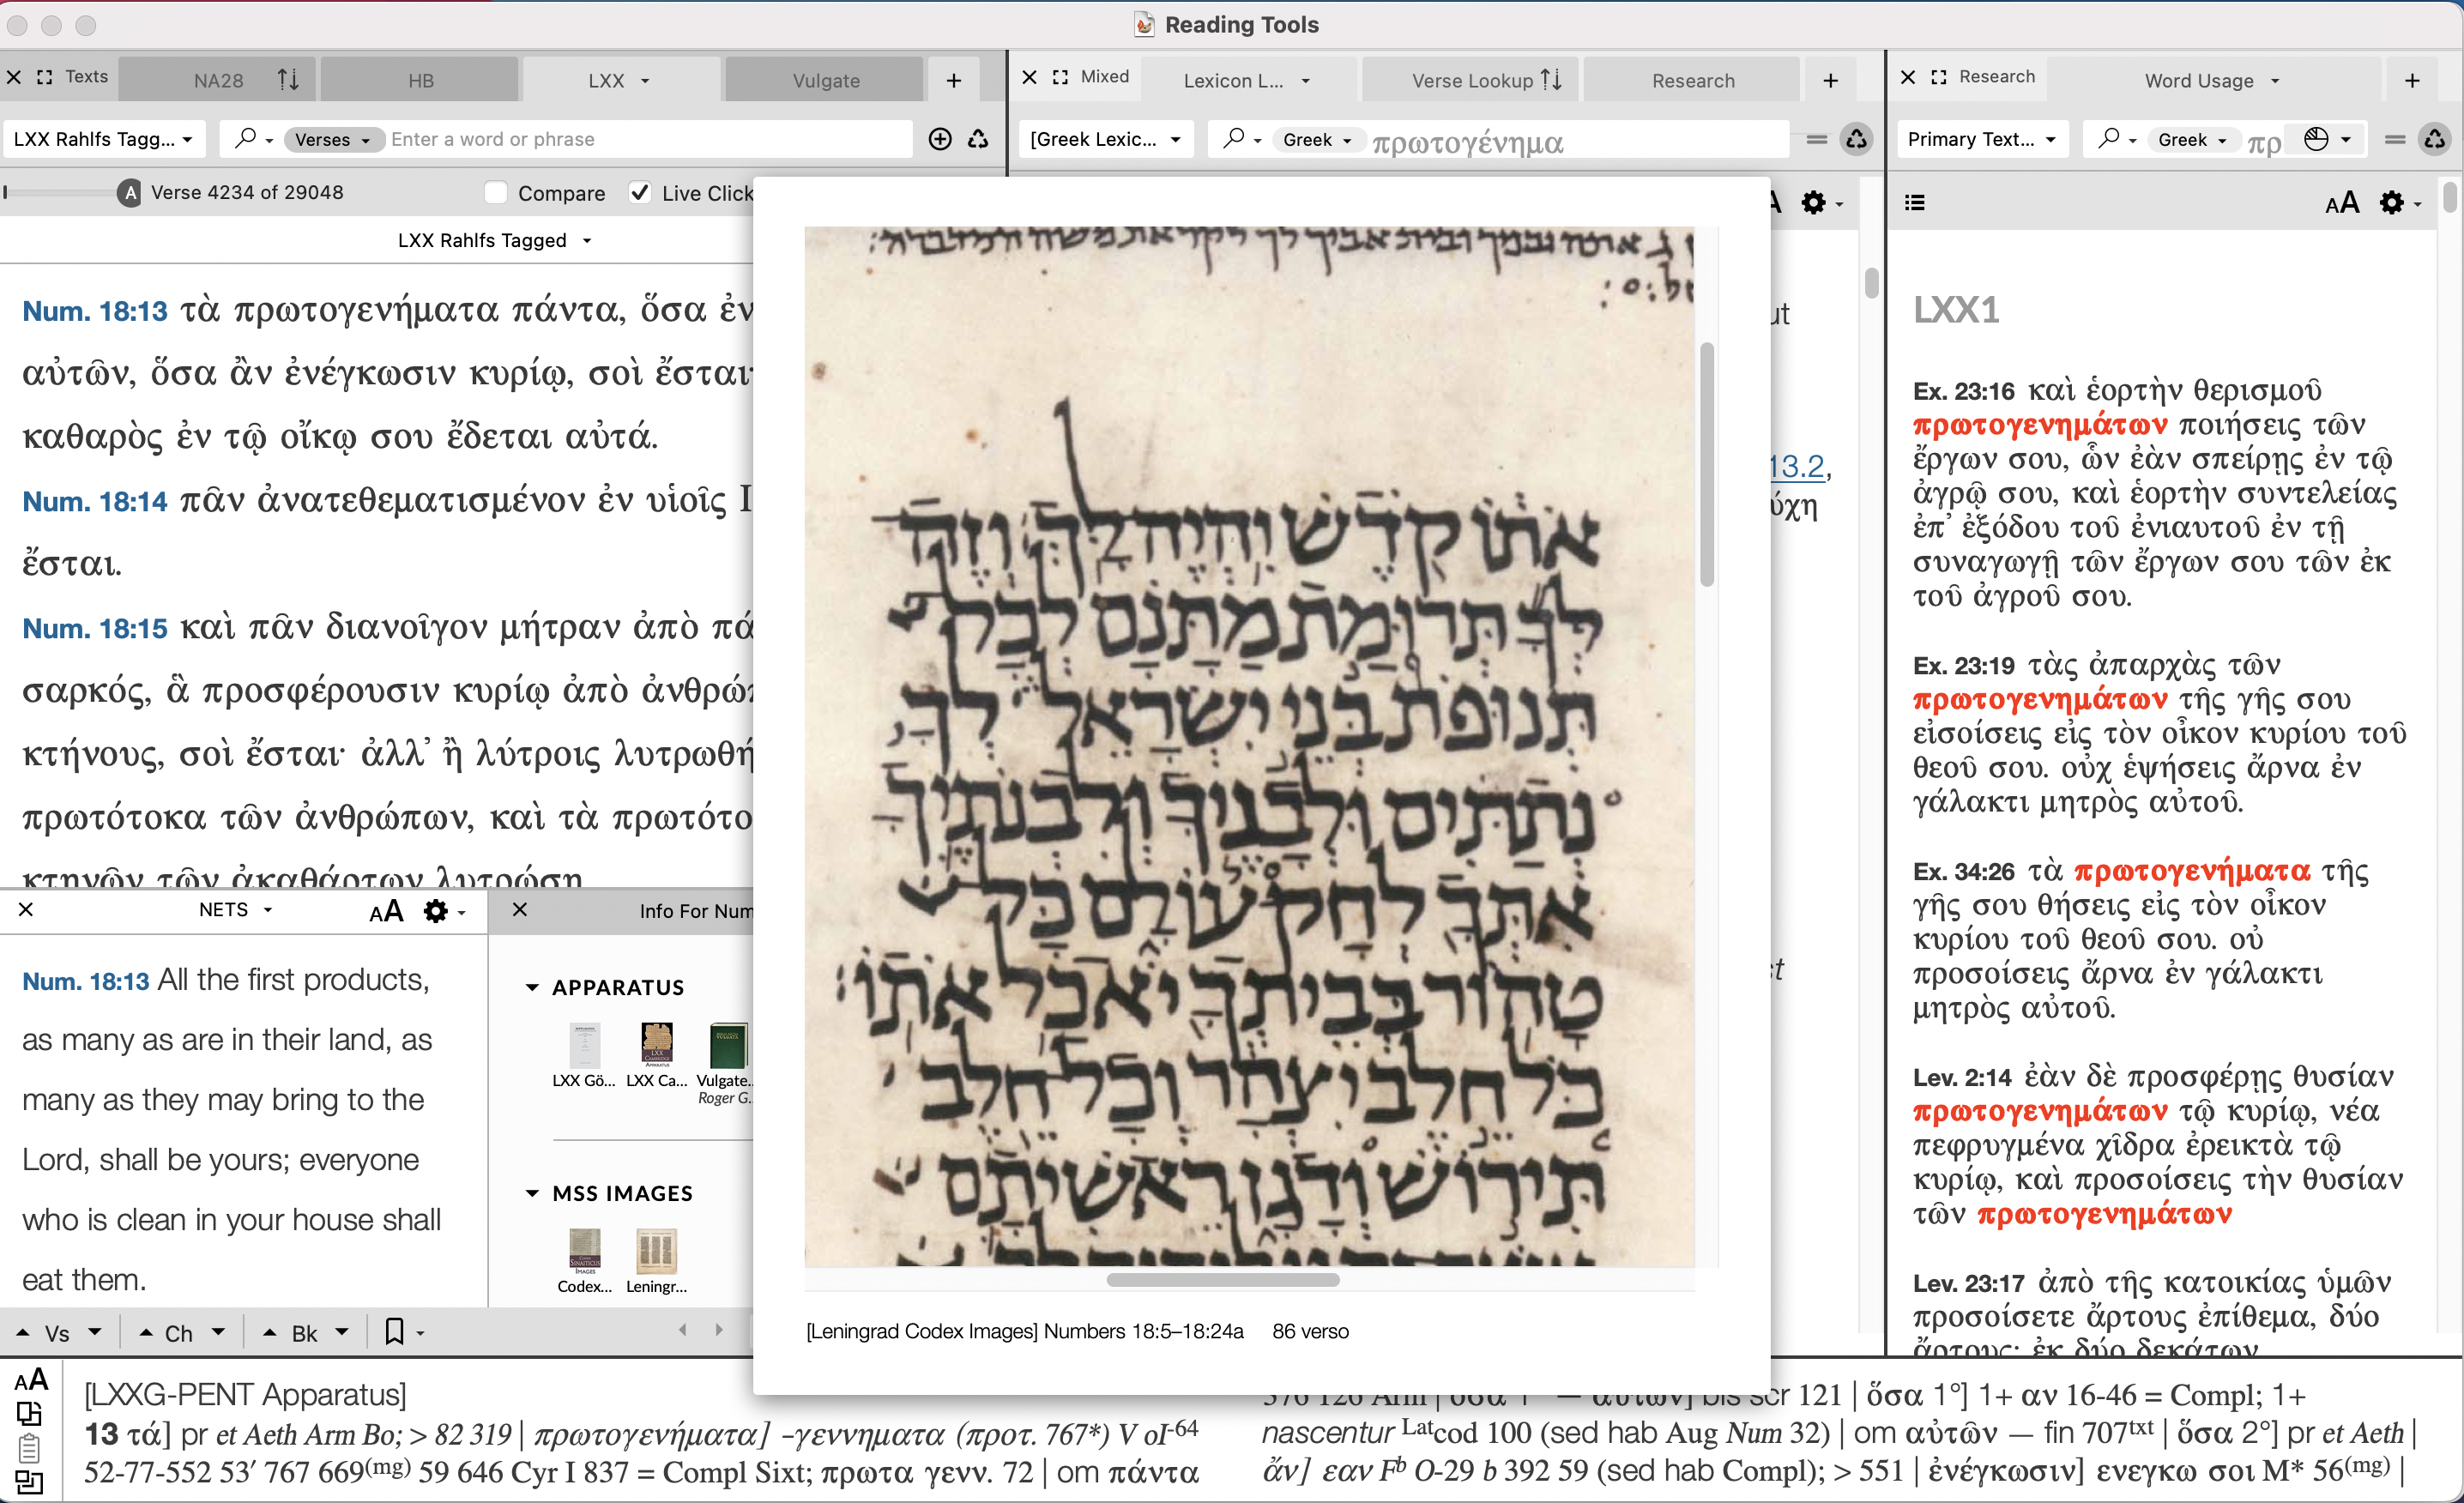 Reading Tools
Texts NA28 HB LXX Vulgate +
LXX Rahlfs Tagg... Verses Enter a word or phrase
A Verse 4234 of 29048 Compare Live Click
LXX Rahlfs Tagged
Num. 18:13 τὰ πρωτογενήματα πάντα, ὅσα ἐν
αὐτῶν, ὅσα ἂν ἐνέγκωσιν κυρίῳ, σοὶ ἔσται·
καθαρὸς ἐν τῷ οἴκῳ σου ἔδεται αὐτά.
Num. 18:14 πᾶν ἀνατεθεματισμένον ἐν υἱοῖς Ι
ἔσται.
Num. 18:15 καὶ πᾶν διανοῖγον μήτραν ἀπὸ πά
σαρκός, ἃ προσφέρουσιν κυρίῳ ἀπὸ ἀνθρώπ
κτήνους, σοὶ ἔσται· ἀλλ᾽ ἢ λύτροις λυτρωθή
πρωτότοκα τῶν ἀνθρώπων, καὶ τὰ πρωτότο
κτηνῶν τῶν ἀκαθάρτων λυτρώσῃ
NETS AA
Num. 18:13 All the first products,
as many as are in their land, as
many as they may bring to the
Lord, shall be yours; everyone
who is clean in your house shall
eat them.
Info For Num
APPARATUS
LXX Gö... LXX Ca... Vulgate...
Roger G...
MSS IMAGES
Codex... Leningr...
Vs Ch Bk
Mixed Lexicon L... Verse Lookup Research +
[Greek Lexic... Greek πρωτογένημα
ut
13.2,
ύχη
st
אתו קדש יהיה לך וזה
לך תרומת מתנם לכל
תנופת בני ישראל לך
נתתים ולבניך ולבנתיך
אתך לחק עולם כל
טהור בביתך יאכל אתו
כל חלב יצהר וכל חלב
תירוש ודגן ראשיתם
[Leningrad Codex Images] Numbers 18:5–18:24a 86 verso
Research Word Usage +
Primary Text... Greek πρ
AA
LXX1
Ex. 23:16 καὶ ἑορτὴν θερισμοῦ
πρωτογενημάτων ποιήσεις τῶν
ἔργων σου, ὧν ἐὰν σπείρῃς ἐν τῷ
ἀγρῷ σου, καὶ ἑορτὴν συντελείας
ἐπ᾽ ἐξόδου τοῦ ἐνιαυτοῦ ἐν τῇ
συναγωγῇ τῶν ἔργων σου τῶν ἐκ
τοῦ ἀγροῦ σου.
Ex. 23:19 τὰς ἀπαρχὰς τῶν
πρωτογενημάτων τῆς γῆς σου
εἰσοίσεις εἰς τὸν οἶκον κυρίου τοῦ
θεοῦ σου. οὐχ ἑψήσεις ἄρνα ἐν
γάλακτι μητρὸς αὐτοῦ.
Ex. 34:26 τὰ πρωτογενήματα τῆς
γῆς σου θήσεις εἰς τὸν οἶκον
κυρίου τοῦ θεοῦ σου. οὐ
προσοίσεις ἄρνα ἐν γάλακτι
μητρὸς αὐτοῦ.
Lev. 2:14 ἐὰν δὲ προσφέρῃς θυσίαν
πρωτογενημάτων τῷ κυρίῳ, νέα
πεφρυγμένα χῖδρα ἐρεικτὰ τῷ
κυρίῳ, καὶ προσοίσεις τὴν θυσίαν
τῶν πρωτογενημάτων
Lev. 23:17 ἀπὸ τῆς κατοικίας ὑμῶν
προσοίσετε ἄρτους ἐπίθεμα, δύο
ἄρτους· ἐκ δύο δεκάτων
AA
[LXXG-PENT Apparatus]
13 τά] pr et Aeth Arm Bo; > 82 319 | πρωτογενήματα] -γεννηματα (προτ. 767*) V oI-64
52-77-552 53′ 767 669(mg) 59 646 Cyr I 837 = Compl Sixt; πρωτα γενν. 72 | om πάντα
376 126 Arm | ὅσα 1° — αὐτῶν] bis scr 121 | ὅσα 1°] 1+ αν 16-46 = Compl; 1+
nascentur Latcod 100 (sed hab Aug Num 32) | om αὐτῶν — fin 707txt | ὅσα 2°] pr et Aeth |
ἄν] εαν Fb O-29 b 392 59 (sed hab Compl); > 551 | ἐνέγκωσιν] ενεγκω σοι M* 56(mg) |